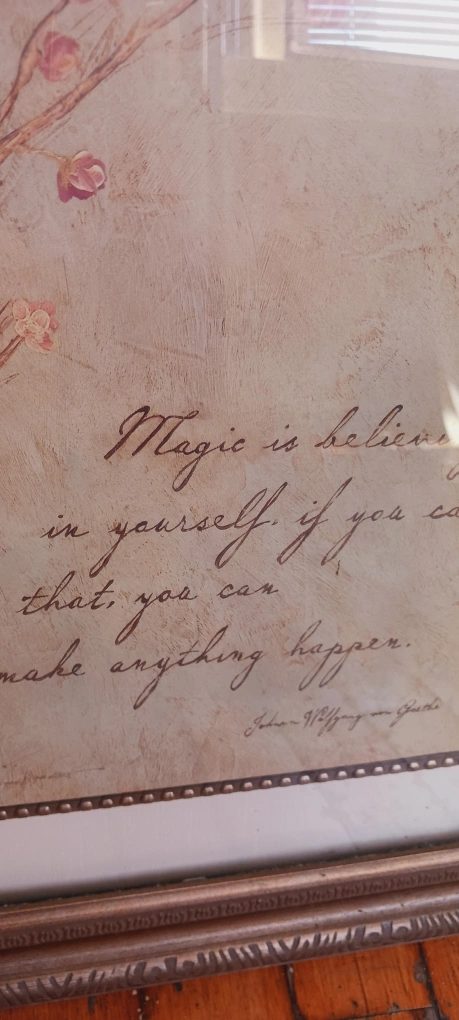 Magic is believ
in yourself. if you ca
that, you can
make anything happen.
Johann Wolfgang von Goethe